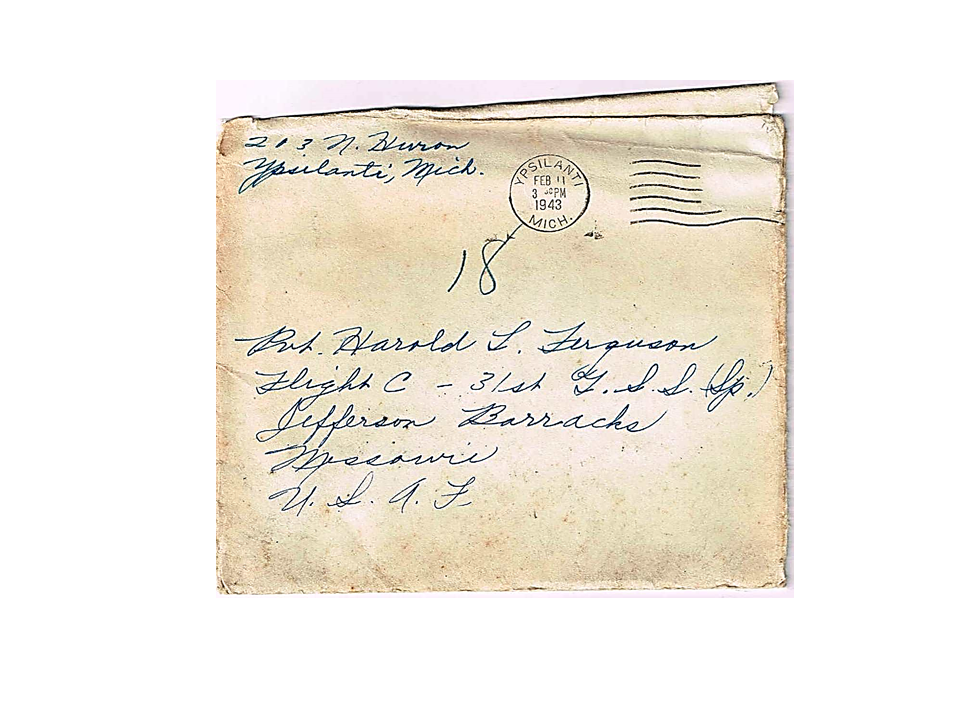 213 N. Huron
Ypsilanti, Mich.
YPSILANTI
FEB 11
3 30 PM
1943
MICH.
18
Pvt. Harold L. Ferguson
Flight C - 31st T.S.S. (Sp.)
Jefferson Barracks
Missourie
U. S. A. F.